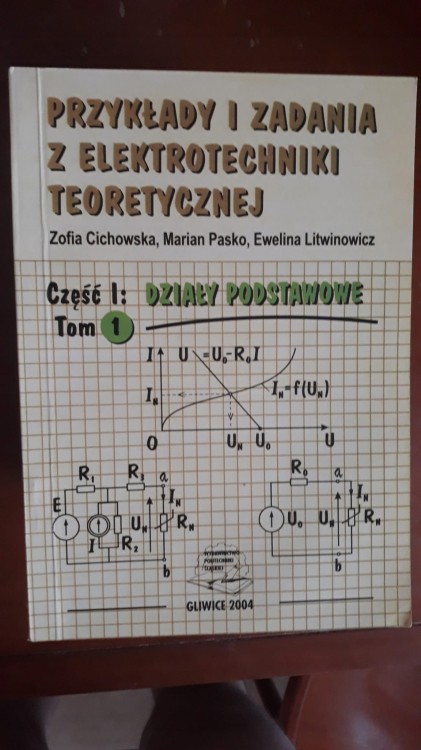 PRZYKŁADY I ZADANIA
Z ELEKTROTECHNIKI
TEORETYCZNEJ
Zofia Cichowska, Marian Pasko, Ewelina Litwinowicz
Część I: DZIAŁY PODSTAWOWE
Tom 1
I U=U₀-R₀I
Iₙ=f(Uₙ)
Iₙ
O Uₙ U₀ U
R₁ R₃ a
Iₙ
E Uₙ Rₙ
I R₂
b
R₀ a
Iₙ
U₀ Uₙ Rₙ
b
WYDAWNICTWO
POLITECHNIKI
ŚLĄSKIEJ
GLIWICE 2004